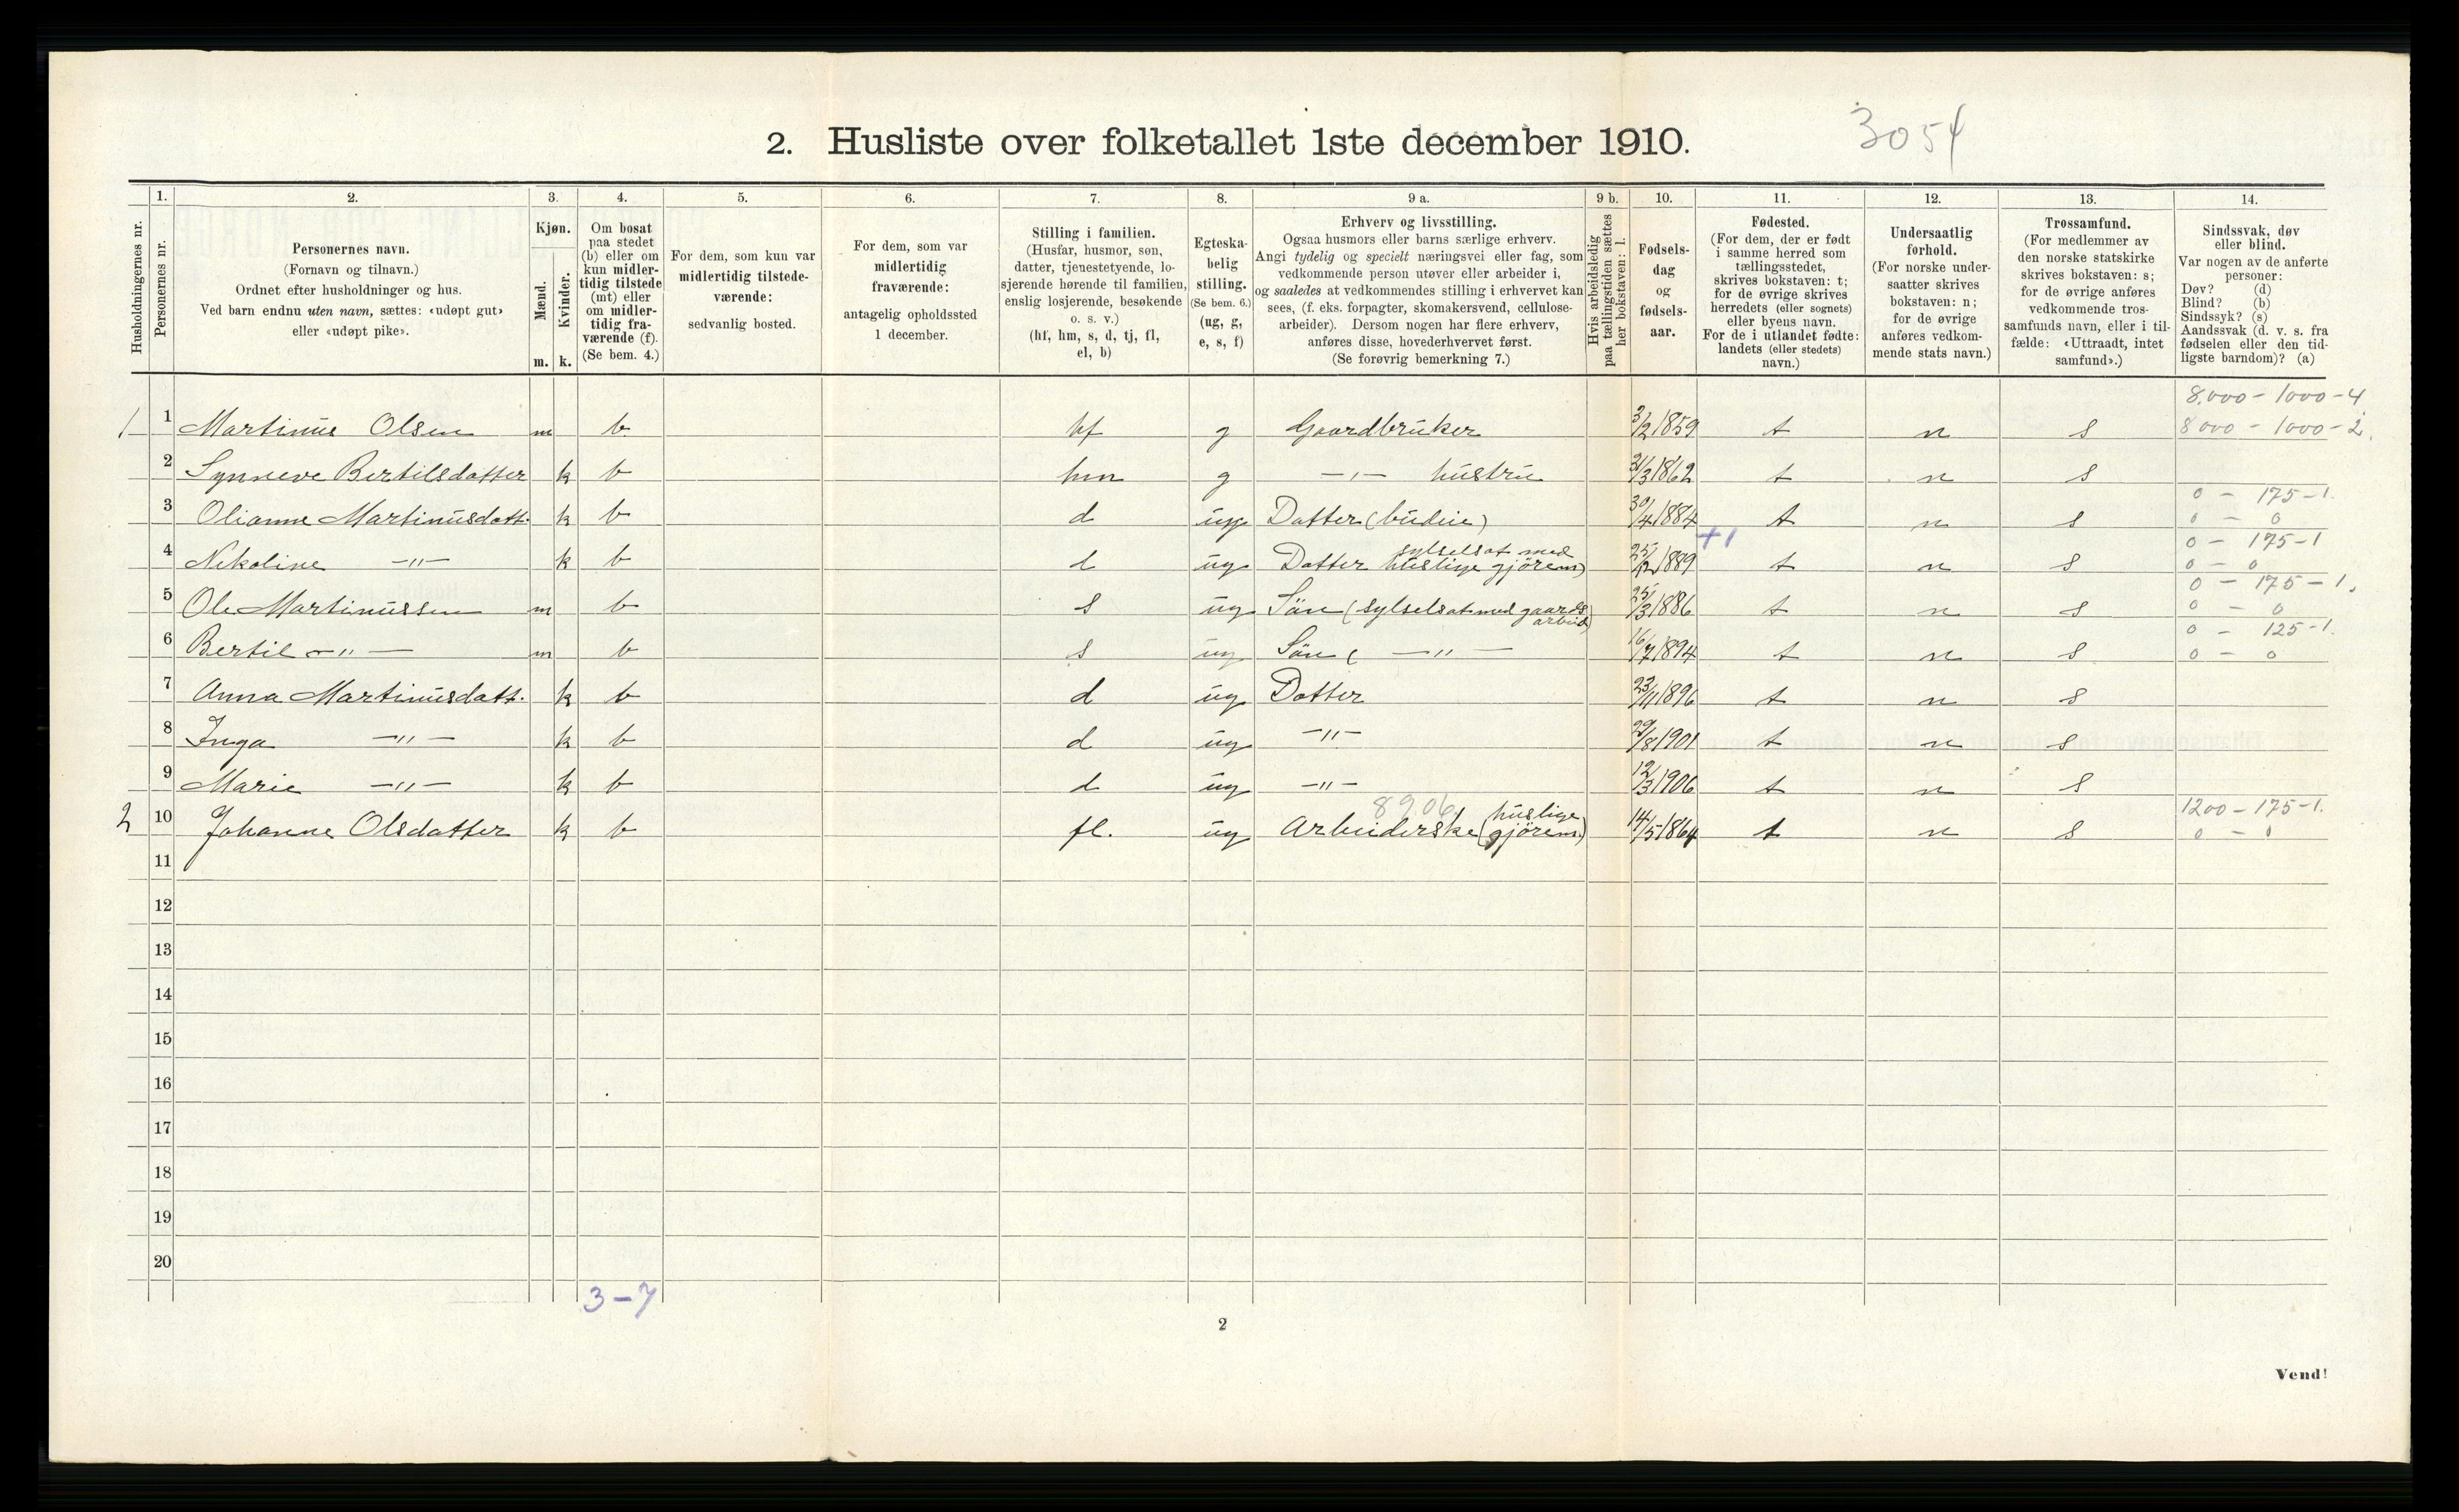 2. Husliste over folketallet 1ste december 1910.
3054
Husholdningernes nr.
1.
Personernes nr.
2.
Personernes navn.
(Fornavn og tilnavn.)
Ordnet efter husholdninger og hus.
Ved barn endnu uten navn, sættes: «udøpt gut»
eller «udøpt pike».
3.
Kjøn.
Mænd.
Kvinder.
m. k.
4.
Om bosat
paa stedet
(b) eller om
kun midler-
tidig tilstede
(mt) eller
om midler-
tidig fra-
værende (f).
(Se bem. 4.)
5.
For dem, som kun var
midlertidig tilstede-
værende:
sedvanlig bosted.
6.
For dem, som var
midlertidig
fraværende:
antagelig opholdssted
1 december.
7.
Stilling i familien.
(Husfar, husmor, søn,
datter, tjenestetyende, lo-
sjerende hørende til familien,
enslig losjerende, besøkende
o. s. v.)
(hf, hm, s, d, tj, fl,
el, b)
8.
Egteska-
belig
stilling.
(Se bem. 6.)
(ug, g,
e, s, f)
9 a.
Erhverv og livsstilling.
Ogsaa husmors eller barns særlige erhverv.
Angi tydelig og specielt næringsvei eller fag, som
vedkommende person utøver eller arbeider i,
og saaledes at vedkommendes stilling i erhvervet kan
sees, (f. eks. forpagter, skomakersvend, cellulose-
arbeider). Dersom nogen har flere erhverv,
anføres disse, hovederhvervet først.
(Se forøvrig bemerkning 7.)
9 b.
Hvis arbeidsledig
paa tællingstiden sættes
her bokstaven: l.
10.
Fødsels-
dag
og
fødsels-
aar.
11.
Fødested.
(For dem, der er født
i samme herred som
tællingsstedet,
skrives bokstaven: t;
for de øvrige skrives
herredets (eller sognets)
eller byens navn.
For de i utlandet fødte:
landets (eller stedets)
navn.)
12.
Undersaatlig
forhold.
(For norske under-
saatter skrives
bokstaven: n;
for de øvrige
anføres vedkom-
mende stats navn.)
13.
Trossamfund.
(For medlemmer av
den norske statskirke
skrives bokstaven: s;
for de øvrige anføres
vedkommende tros-
samfunds navn, eller i til-
fælde: «Uttraadt, intet
samfund».)
14.
Sindssvak, døv
eller blind.
Var nogen av de anførte
personer:
Døv? (d)
Blind? (b)
Sindssyk? (s)
Aandssvak (d. v. s. fra
fødselen eller den tid-
ligste barndom)? (a)
8.000 - 1000 - 4
1 1 Martinus Olsen m b hf g Gaardbruker 3/2 1859 t n s 8000 - 1000 - 2.
2 Synneve Bertilsdatter k b hm g —"— hustru 31/3 1862 t n s
0 - 175 - 1.
3 Olianne Martinusdatt. k b d ug Datter (budeie) 30/4 1884 t n s 0 - 0
+1
0 - 175 - 1
4 Nikoline —"— k b d ug Datter sylselsat med huslige gjörem) 25/12 1889 t n s 0 - 0
0 - 175 - 1.
5 Ole Martinussen m b s ug Sön (sylselsat med gaards arbeid) 25/3 1886 t n s 0 - 0
0 - 125 - 1.
6 Bertil —"— m b s ug Sön ( —"— 16/7 1894 t n s 0 - 0
7 Anna Martinusdatt. k b d ug Datter 23/11 1896 t n s
8 Inga —"— k b d ug —"— 29/8 1901 t n s
9 Marie —"— k b d ug —"— 12/3 1906 t n s
8906
1200 - 175 - 1.
2 10 Johanne Olsdatter k b fl. ug Arbeiderske (huslige gjörem.) 14/5 1864 t n s 0 - 0
11
12
13
14
15
16
17
18
19
20
3 - 7
2
Vend!